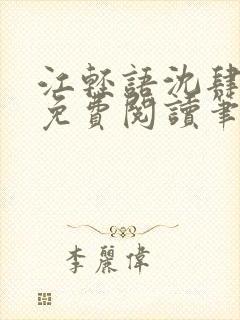 江輕語沈肆
免費閱讀筆
李麗偉